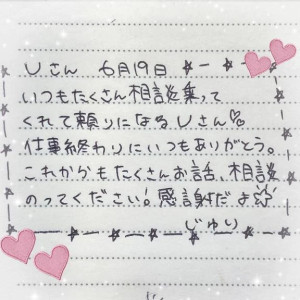 Uさん 6月19日
いつもたくさん相談乗って
くれて頼りになるUさん♡
仕事終わりにいつもありがとう。
これからもたくさんお話、相談
のってください!感謝だよ☆
じゅり